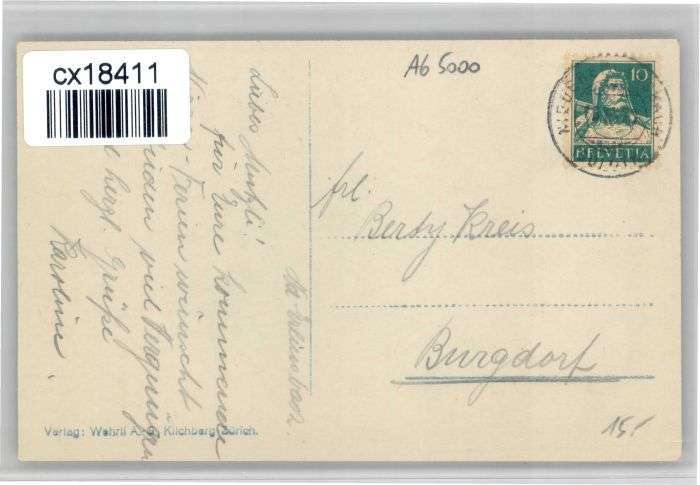 cx18411
A6 5000
10
HELVETIA
Liebes
für Eure kommende
Ferien wünscht
viel Vergnügen
herzl. Grüße
Karoline.
Frl.
Berdy Kreis
Burgdorf
15.-
Verlag: Wehrli A.G. Kilchberg Zürich.